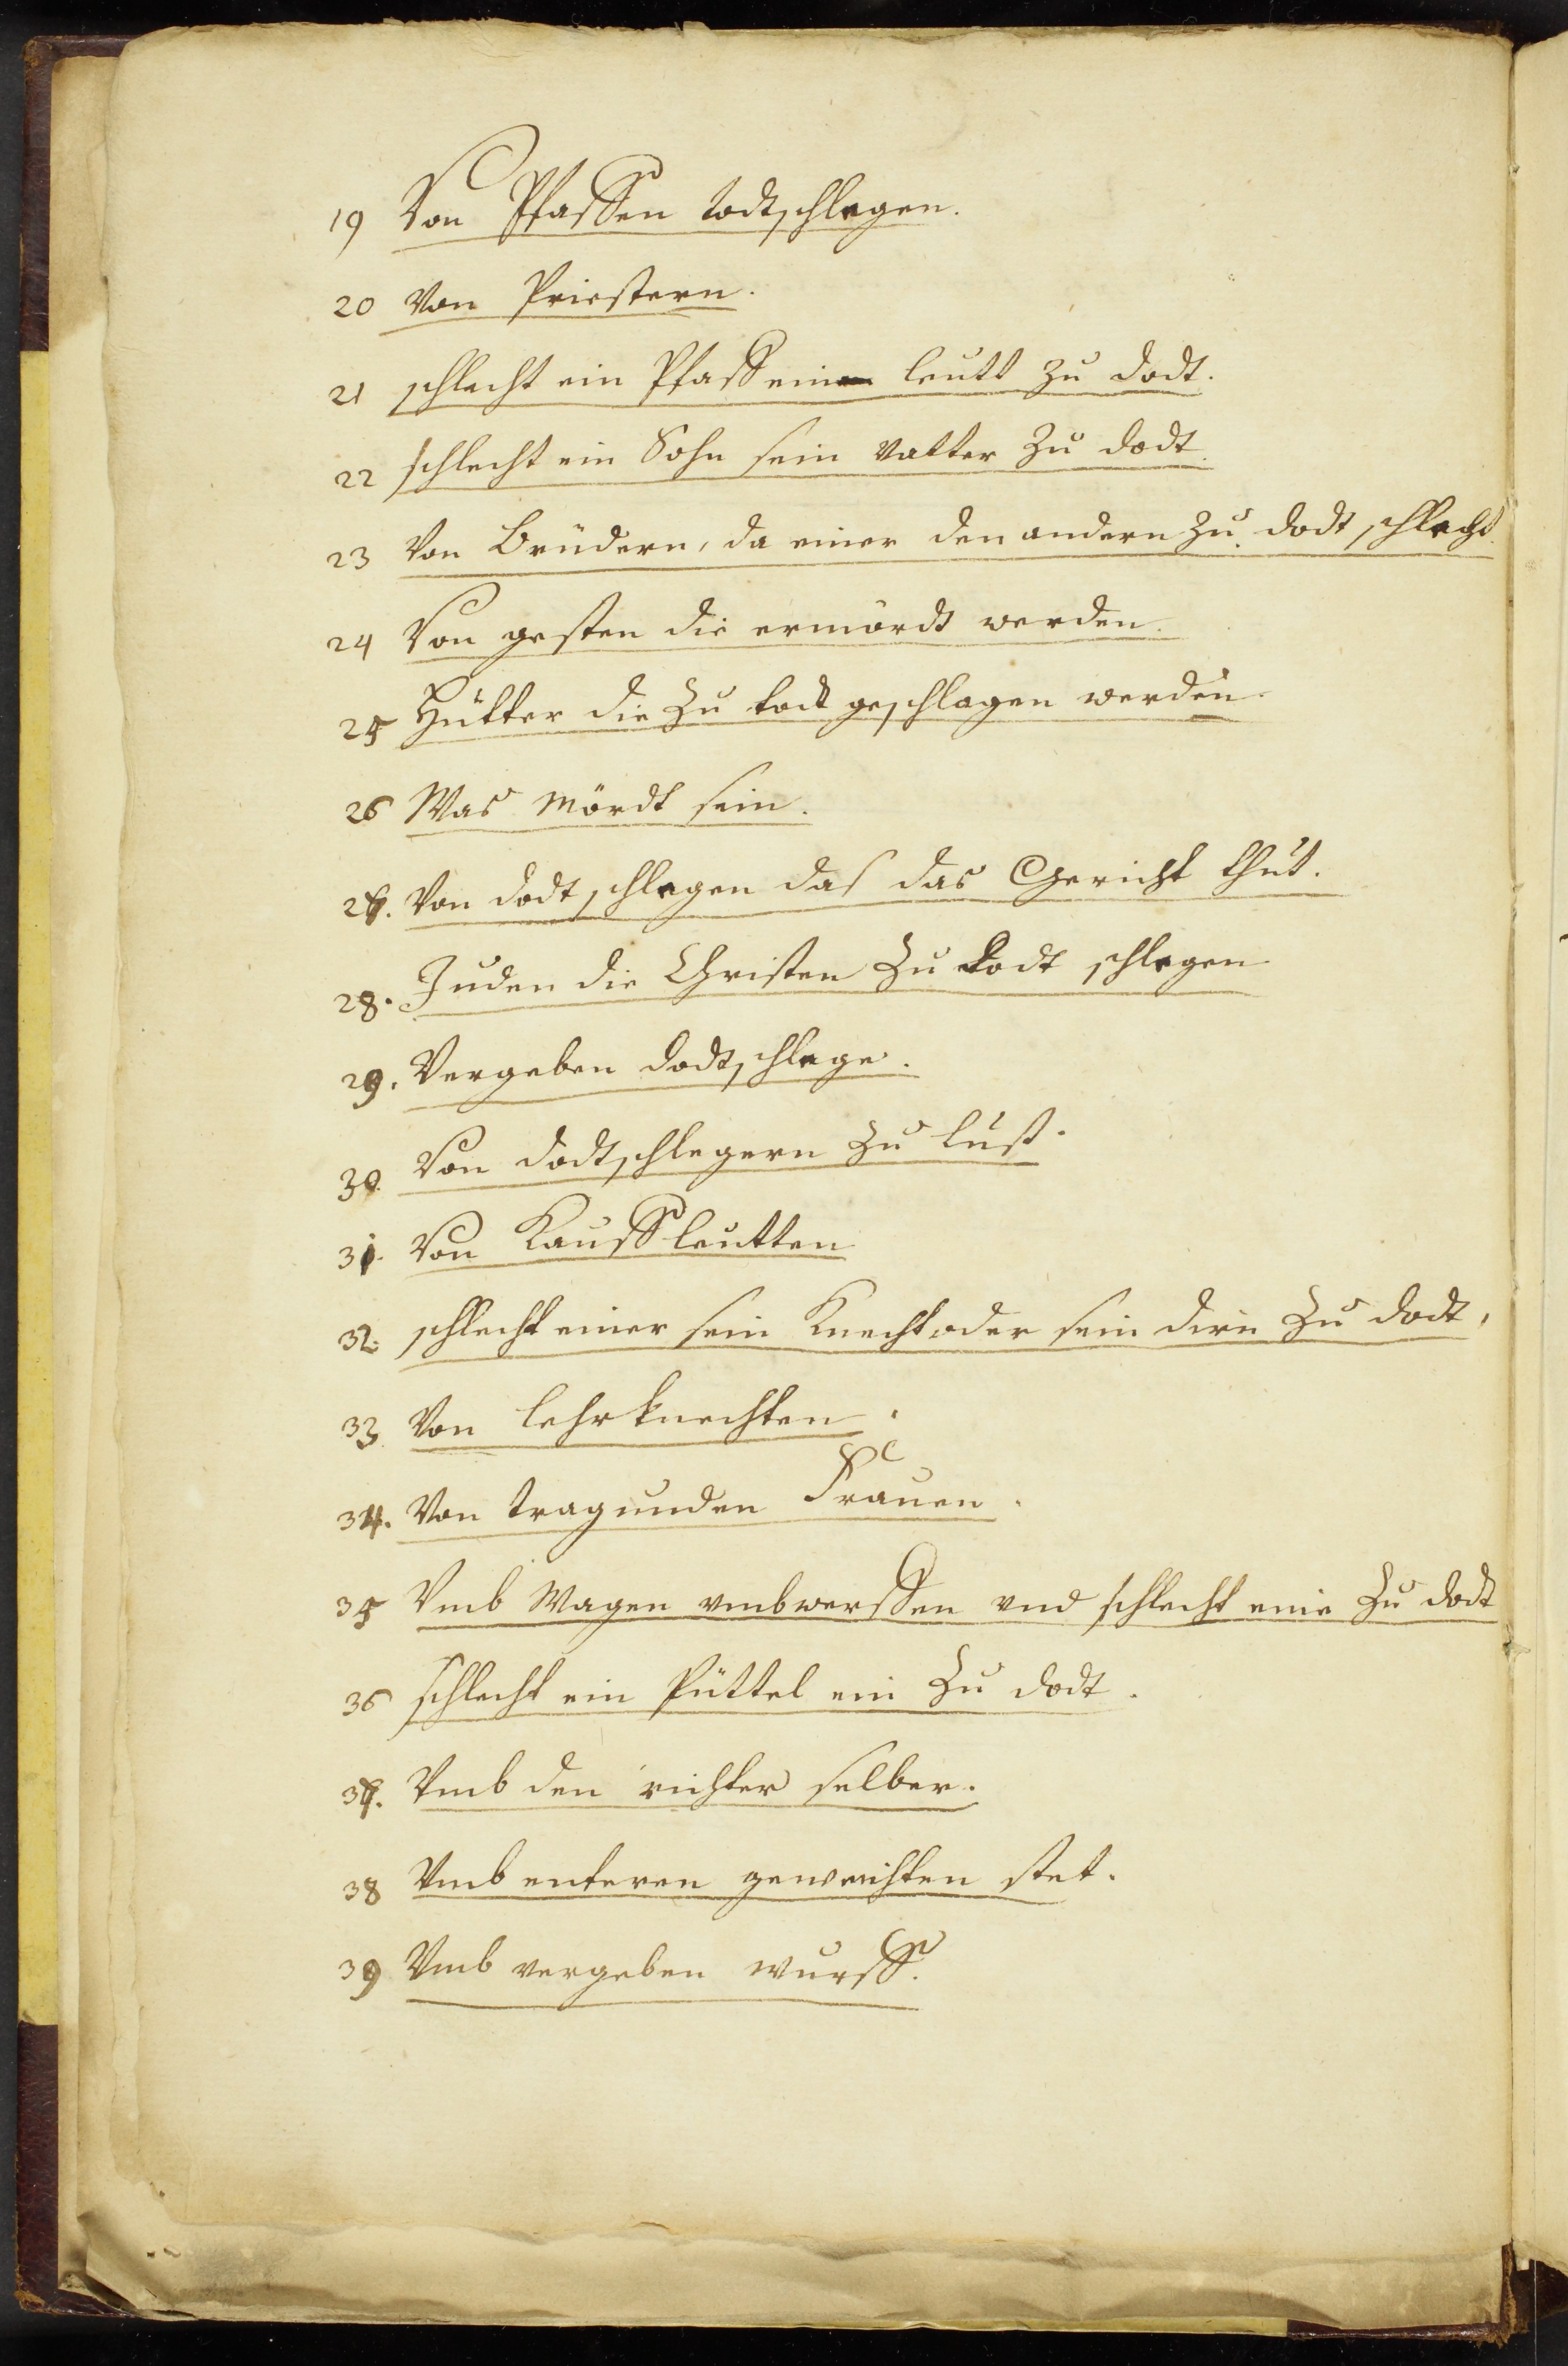 19 Von Pfaffen todtschlegen.
20 Von Priestern.
21 schlecht ein Pfaff ein leutt zu dodt.
22 schlecht ein Sohn sein vatter zu dodt.
23 Von Brüdern, da einer den andern zu dodt schlecht.
24 Von gesten die ermördt werden.
25 Hütter die zu todt geschlagen werden.
26 Was mördt sein.
27. Von dodtschlegen das das Gericht thut.
28. Juden die Christen zu todt schlegen
29. Vergeben dodtschlege.
30. Von dodtschlegern zu lust.
31. Von Kauffleutten
32. schlecht einer sein Knecht oder sein dirn zu dodt,
33. Von lehrknechten.
34. Von tragunden Frauen.
35 Vmb Wagen vmbwerffen vnd schlecht eine zu dodt
36 schlecht ein Püttel ein zu dodt.
37. Vmb den richter selber.
38 Vmb enteren geweichten stet.
39 Vmb vergeben wurff.